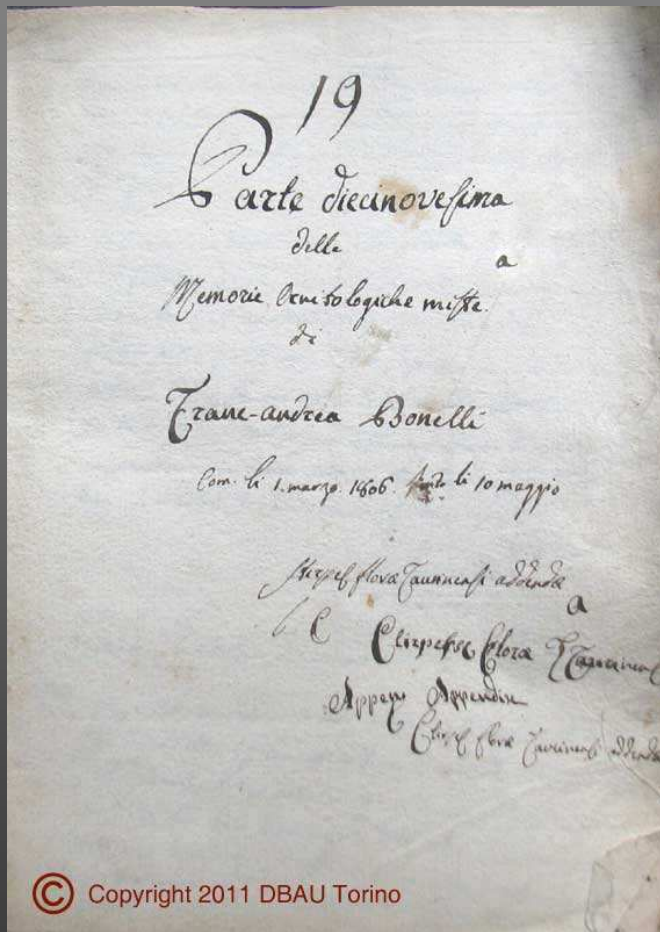 19
Parte diecinovesima
delle
a
Memorie Ornitologiche miste.
di
Franc-andrea Bonelli
Com. li 1. marzo. 1806. finito li 10 maggio
Stirpes floræ Taurinensi addendæ
a
C Stirpesse Floræ Taurinens
Appen Appendix
Stirpes floræ Taurinensi addendæ
© Copyright 2011 DBAU Torino